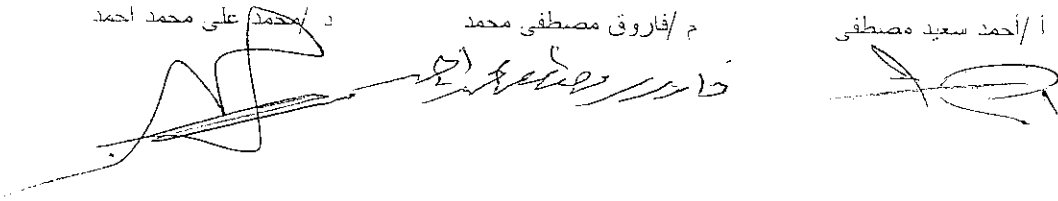 أ /أحمد سعيد مصطفى م /فاروق مصطفى محمد د /محمد على محمد احمد
فاروق مصطفى محمد